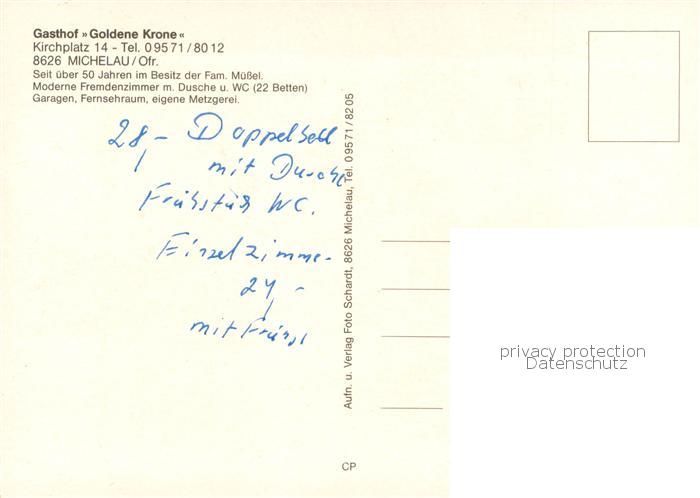 Gasthof »Goldene Krone«
Kirchplatz 14 - Tel. 09571/8012
8626 MICHELAU/Ofr.
Seit über 50 Jahren im Besitz der Fam. Müßel.
Moderne Fremdenzimmer m. Dusche u. WC (22 Betten)
Garagen, Fernsehraum, eigene Metzgerei.
28,- Doppelbett
mit Dusche
Frühstück WC.
Einzelzimmer
24,-
mit Frühst
Aufn. u. Verlag Foto Schardt, 8626 Michelau, Tel. 09571/8205
CP
privacy protection
Datenschutz